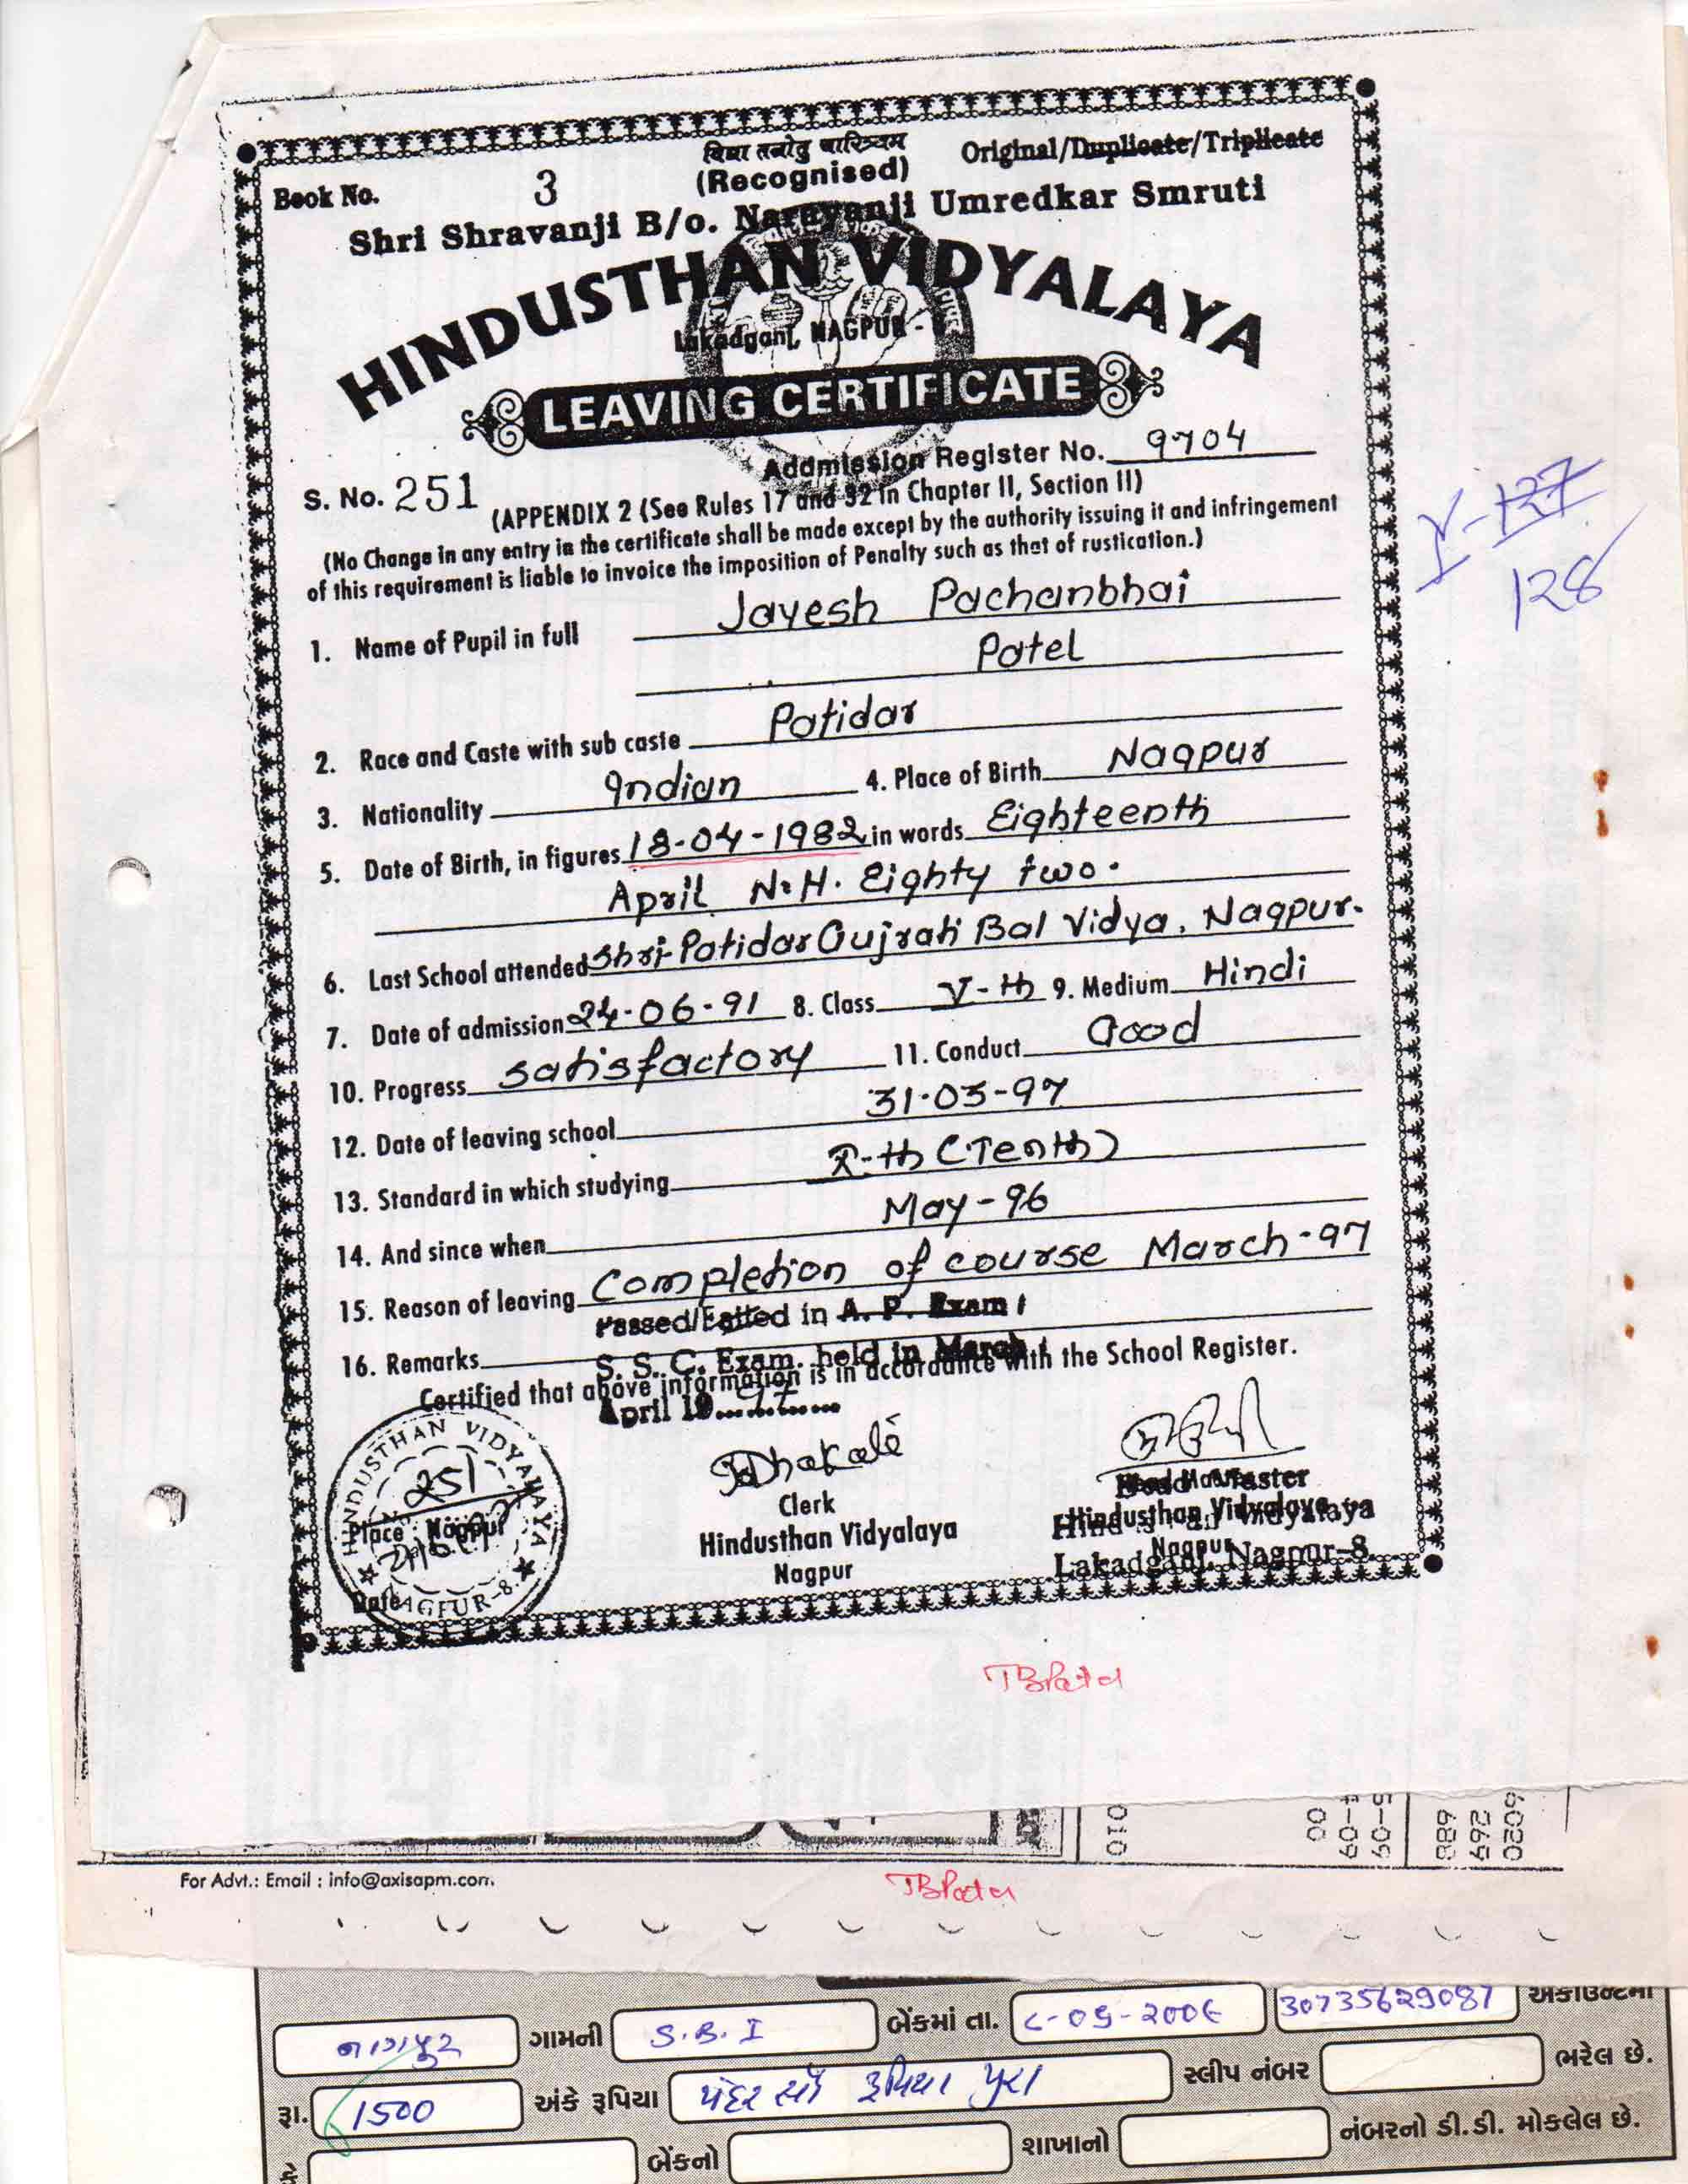 विद्या तनोतु चारित्र्यम
Original/Duplicate/Triplicate
Book No. 3
(Recognised)
Shri Shravanji B/o. Narayanji Umredkar Smruti
HINDUSTHAN VIDYALAYA
Lakadganj, NAGPUR -
LEAVING CERTIFICATE
Addmission Register No. 9704
S. No. 251 (APPENDIX 2 (See Rules 17 and 32 in Chapter II, Section II)
(No Change in any entry in the certificate shall be made except by the authority issuing it and infringement
of this requirement is liable to invoice the imposition of Penalty such as that of rustication.)
V-127
128
1. Name of Pupil in full Jayesh Pachanbhai
Patel
2. Race and Caste with sub caste Patidar
3. Nationality Indian 4. Place of Birth Nagpur
5. Date of Birth, in figures 18-04-1982 in words Eighteenth
April N.H. Eighty two.
6. Last School attended Shri Patidar Gujrati Bal Vidya. Nagpur.
7. Date of admission 24-06-91 8. Class V-th 9. Medium Hindi
10. Progress satisfactory 11. Conduct Good
12. Date of leaving school 31-03-97
13. Standard in which studying X-th (Tenth)
14. And since when May-96
15. Reason of leaving Completion of course March-97
Passed/Failed in A. P. Exam /
16. Remarks S. S. C. Exam. held in March /
Certified that above information is in accordance with the School Register.
April 19...97......
HINDUSTHAN VIDYALAYA
251
Place : Nagpur
Date
NAGPUR-8.
Dhakate
Clerk
Hindusthan Vidyalaya
Nagpur
Head Master
Hindusthan Vidyalaya
Nagpur
Lakadganj, Nagpur-8.
TBPatel
For Advt.: Email : info@axisapm.com.
TBPatel
નાગપુર ગામની S.B.I બેંકમાં તા. ૮-૦૬-૨૦૦૯ 30735629087 એકાઉન્ટમાં
રૂા. 1500 અંકે રૂપિયા પંદર સૌ રૂપિયા પુરા સ્લીપ નંબર ભરેલ છે.
બેંકનો શાખાનો નંબરનો ડી.ડી. મોકલેલ છે.